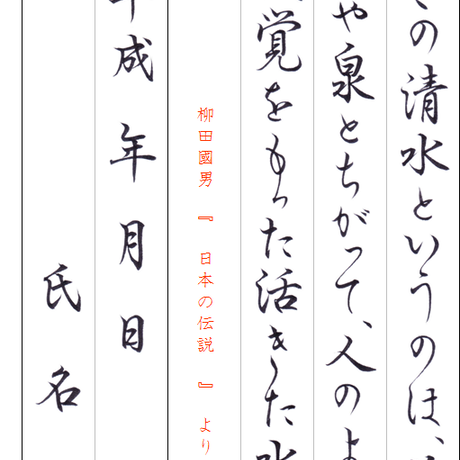 の清水というのは、
や泉とちがって、人の
覚をもった活きた
柳田國男『日本の伝説』より
成年月日
氏名